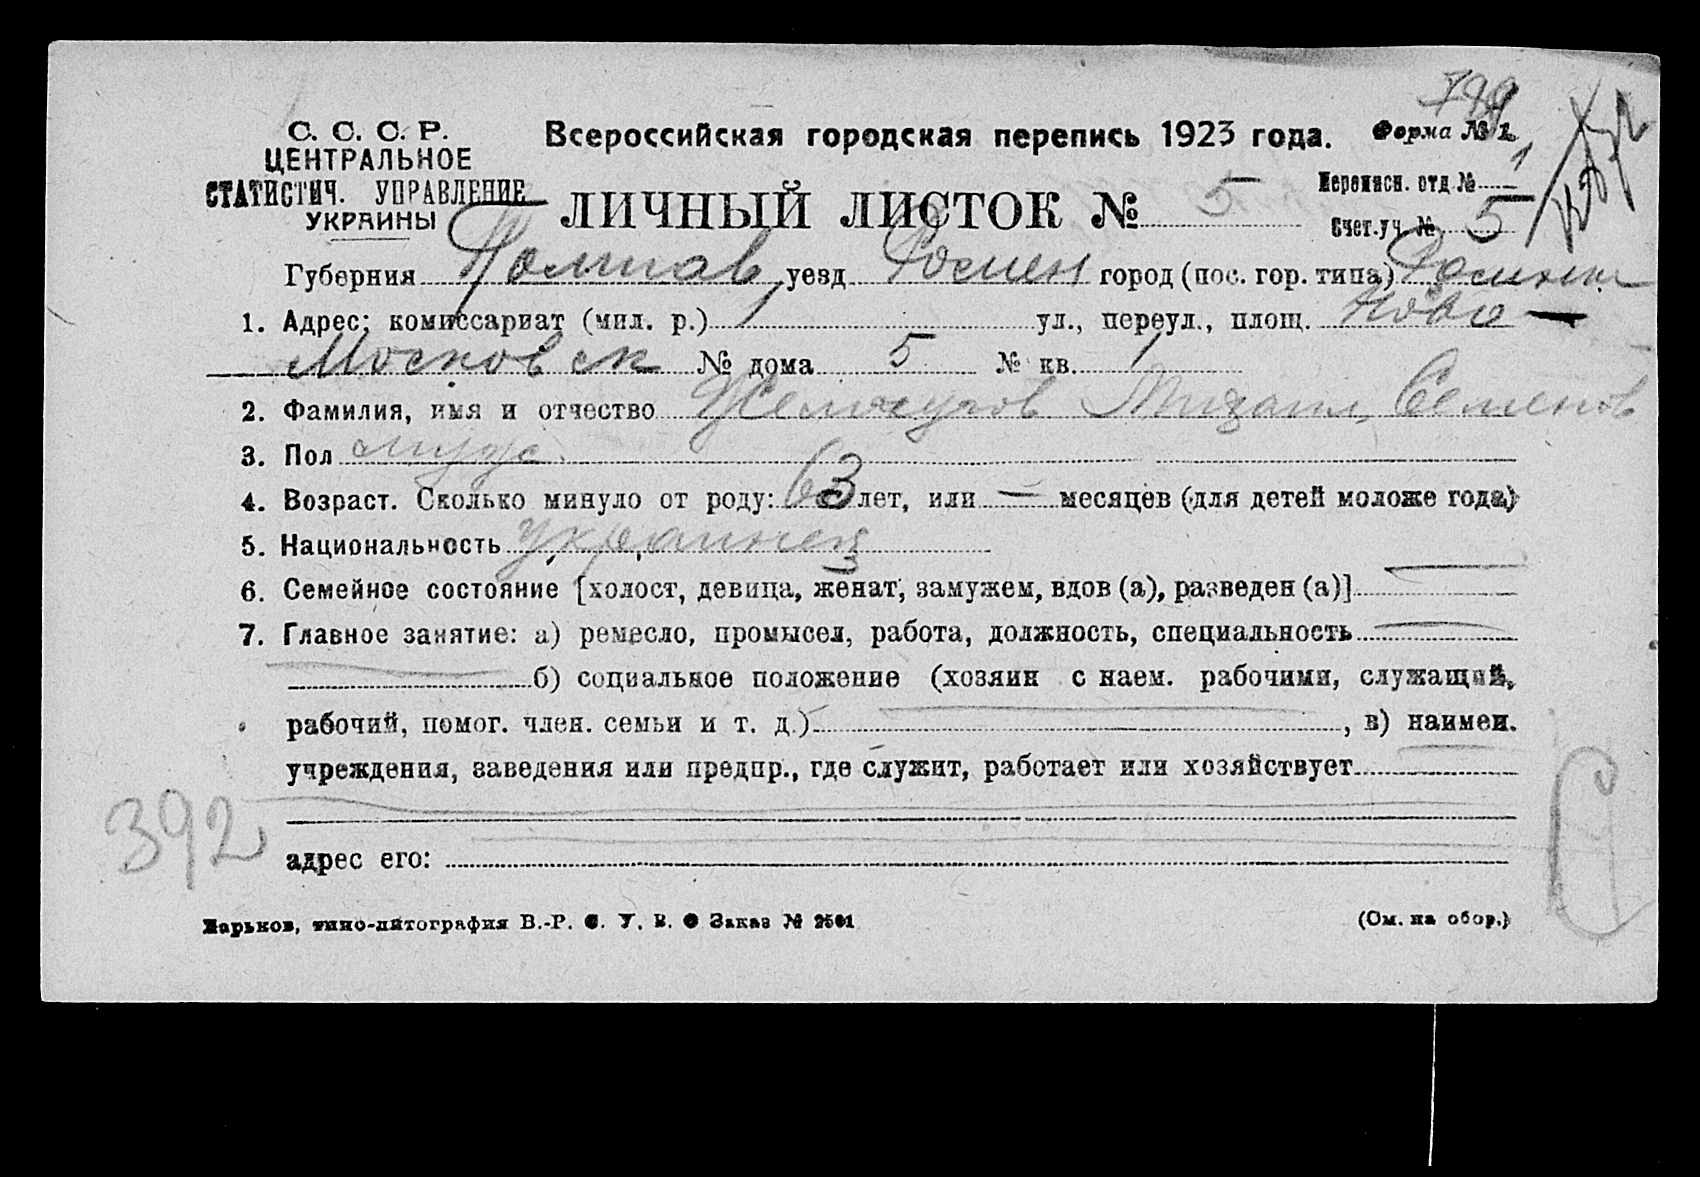 789
С. С. С. Р.
ЦЕНТРАЛЬНОЕ
СТАТИСТИЧ. УПРАВЛЕНИЕ
УКРАИНЫ
Всероссийская городская перепись 1923 года.
Форма № 1
ЛИЧНЫЙ ЛИСТОК № 5
Переписн. отд № 1
Счет.уч. № 5
Губерния Полтав уезд Ромен город (пос. гор. типа) Ромны
1. Адрес: комиссариат (мил. р.) 1 ул., переул., площ. Ново —
Московск № дома 5 № кв. 1
2. Фамилия, имя и отчество Михаил Семенов
3. Пол муж.
4. Возраст. Сколько минуло от роду: 63 лет, или — месяцев (для детей моложе года)
5. Национальность украинец
6. Семейное состояние [холост, девица, женат, замужем, вдов (а), разведен (а)]
7. Главное занятие: а) ремесло, промысел, работа, должность, специальность
б) социальное положение (хозяин с наем. рабочими, служащий,
рабочий, помог. член. семьи и т. д.) , в) наимен.
учреждения, заведения или предпр., где служит, работает или хозяйствует
392
адрес его:
Харьков, типо-литография В.-Р. С. У. В. О Заказ № 2501
(См. на обор.)